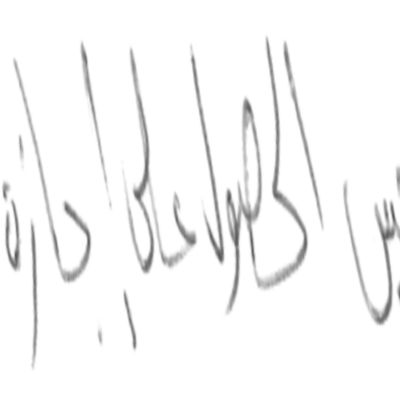 س الحصول على إجازة